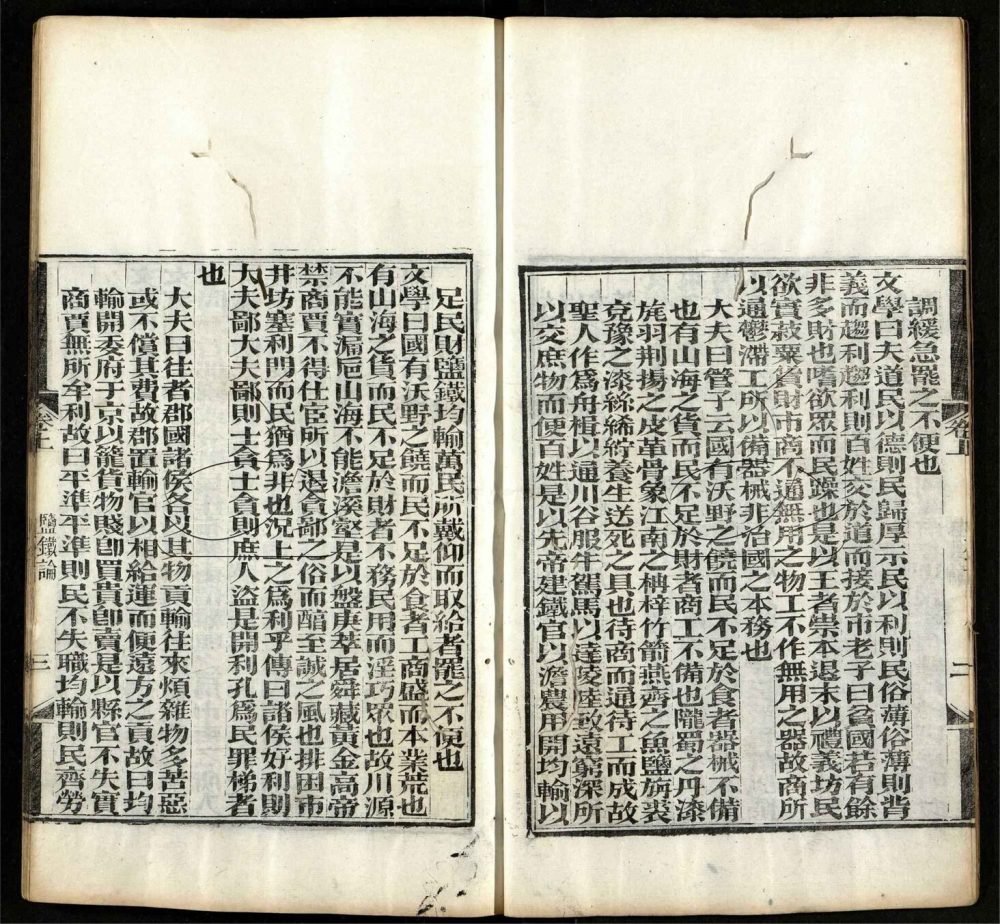 調緩急罷之不便也
文學曰夫道民以德則民歸厚示民以利則民俗薄俗薄則背
義而趨利趨利則百姓交於道而接於市老子曰貧國若有餘
非多財也嗜欲眾而民躁也是以王者崇本退末以禮義坊民
欲實菽粟貨財市商不通無用之物工不作無用之器故商所
以通鬱滯工所以備器械非治國之本務也
大夫曰管子云國有沃野之饒而民不足於食者器械不備
也有山海之貨而民不足於財者商工不備也隴蜀之丹漆
旄羽荊揚之皮革骨象江南之柟梓竹箭燕齊之魚鹽旃裘
兗豫之漆絲絺紵養生送死之具也待商而通待工而成故
聖人作為舟楫以通川谷服牛駕馬以達陵陸致遠窮深所
以交庶物而便百姓是以先帝建鐵官以澹農用開均輸以
卷上
二
足民財鹽鐵均輸萬民所戴仰而取給者罷之不便也
文學曰國有沃野之饒而民不足於食者工商盛而本業荒也
有山海之貨而民不足於財者不務民用而淫巧眾也故川源
不能實漏卮山海不能澹溪壑是以盤庚萃居舜藏黃金高帝
禁商賈不得仕宦所以退貪鄙之俗而醇至誠之風也排困市
井坊塞利門而民猶為非也況上之為利乎傳曰諸侯好利則
大夫鄙大夫鄙則士貪士貪則庶人盜是開利孔為民罪梯者
也
大夫曰往者郡國諸侯各以其物貢輸往來煩雜物多苦惡
或不償其費故郡置輸官以相給運而便遠方之貢故曰均
輸開委府于京以籠貨物賤卽買貴卽賣是以縣官不失實
商賈無所牟利故曰平準平準則民不失職均輸則民齊勞
卷上
鹽鐵論
三